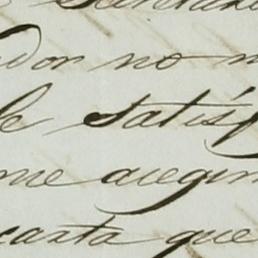 dor no
le satisf
me acegur
carta que